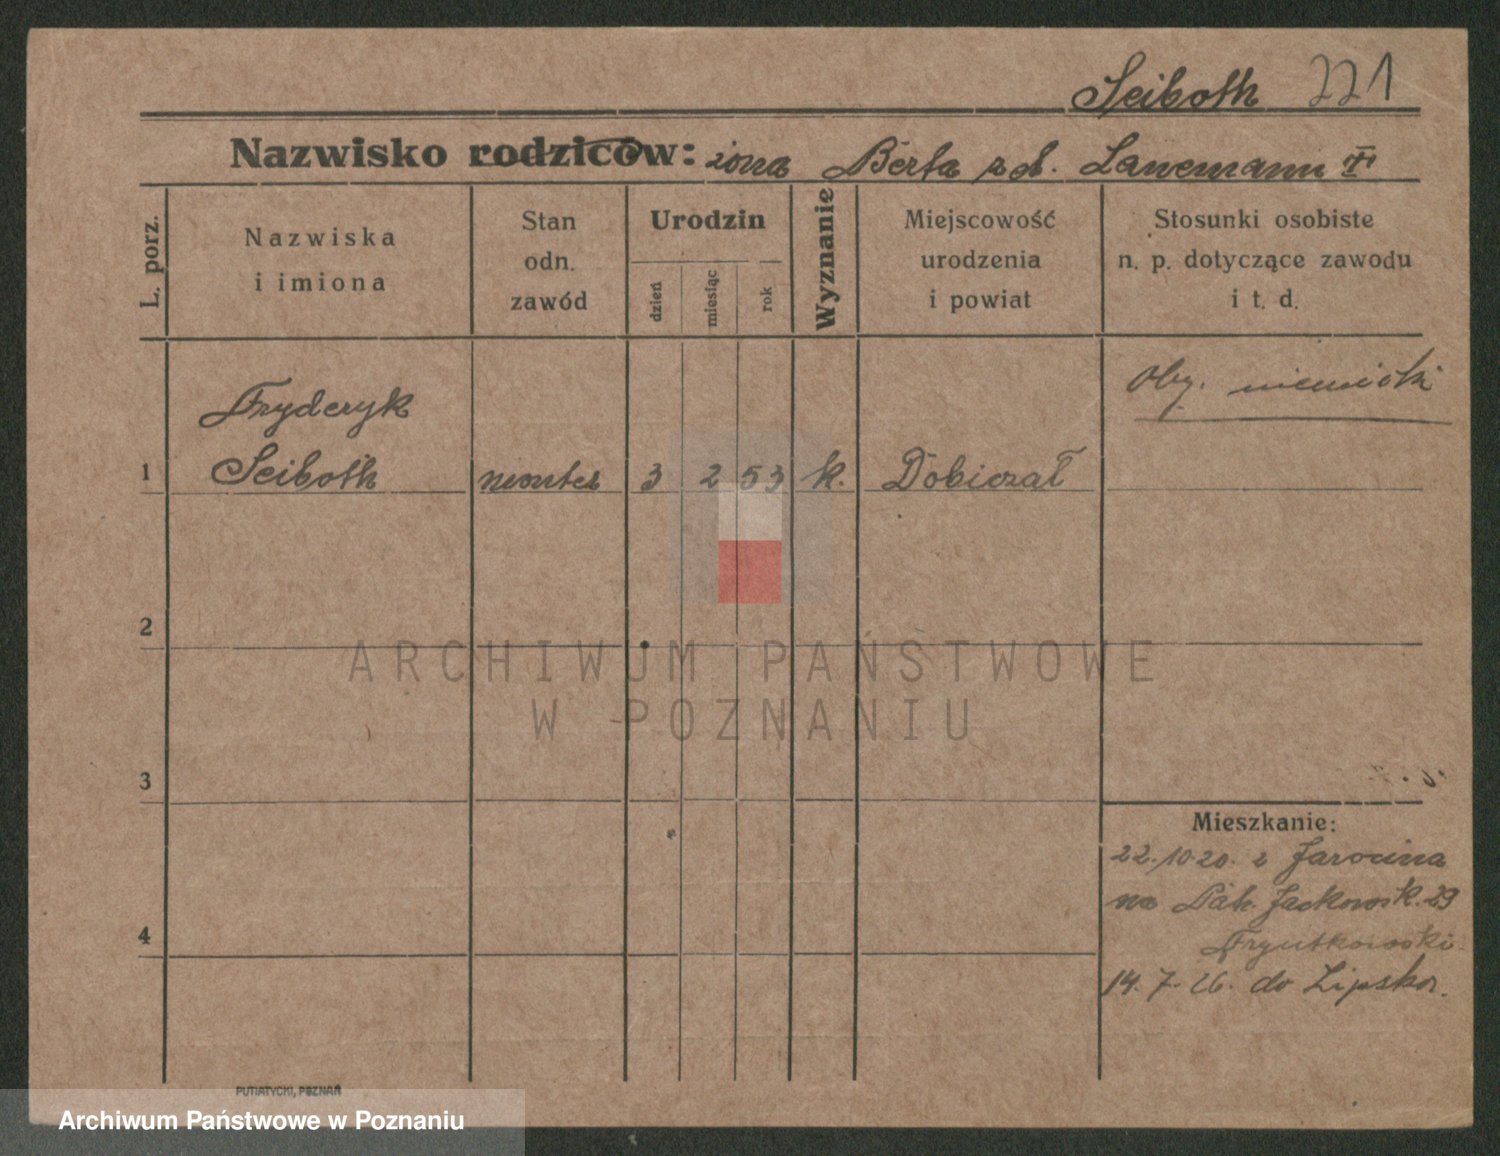 Seiboth 221
Nazwisko rodziców: żona Berta z d.
L. porz.
Nazwiska
i imiona
Stan
odn.
zawód
Urodzin
dzień
miesiąc
rok
Wyznanie
Miejscowość
urodzenia
i powiat
Stosunki osobiste
n. p. dotyczące zawodu
i t. d.
Oby. niemiecki
Fryderyk
1 Seiboth monter 3 2 53 k.
2
3
4
Mieszkanie:
22.10.20. z Jarocina
na Jackowsk. 29
14. 7. 26. do Lipska.
PUTIATYCKI, POZNAŃ
ARCHIWUM PAŃSTWOWE
W POZNANIU
Archiwum Państwowe w Poznaniu